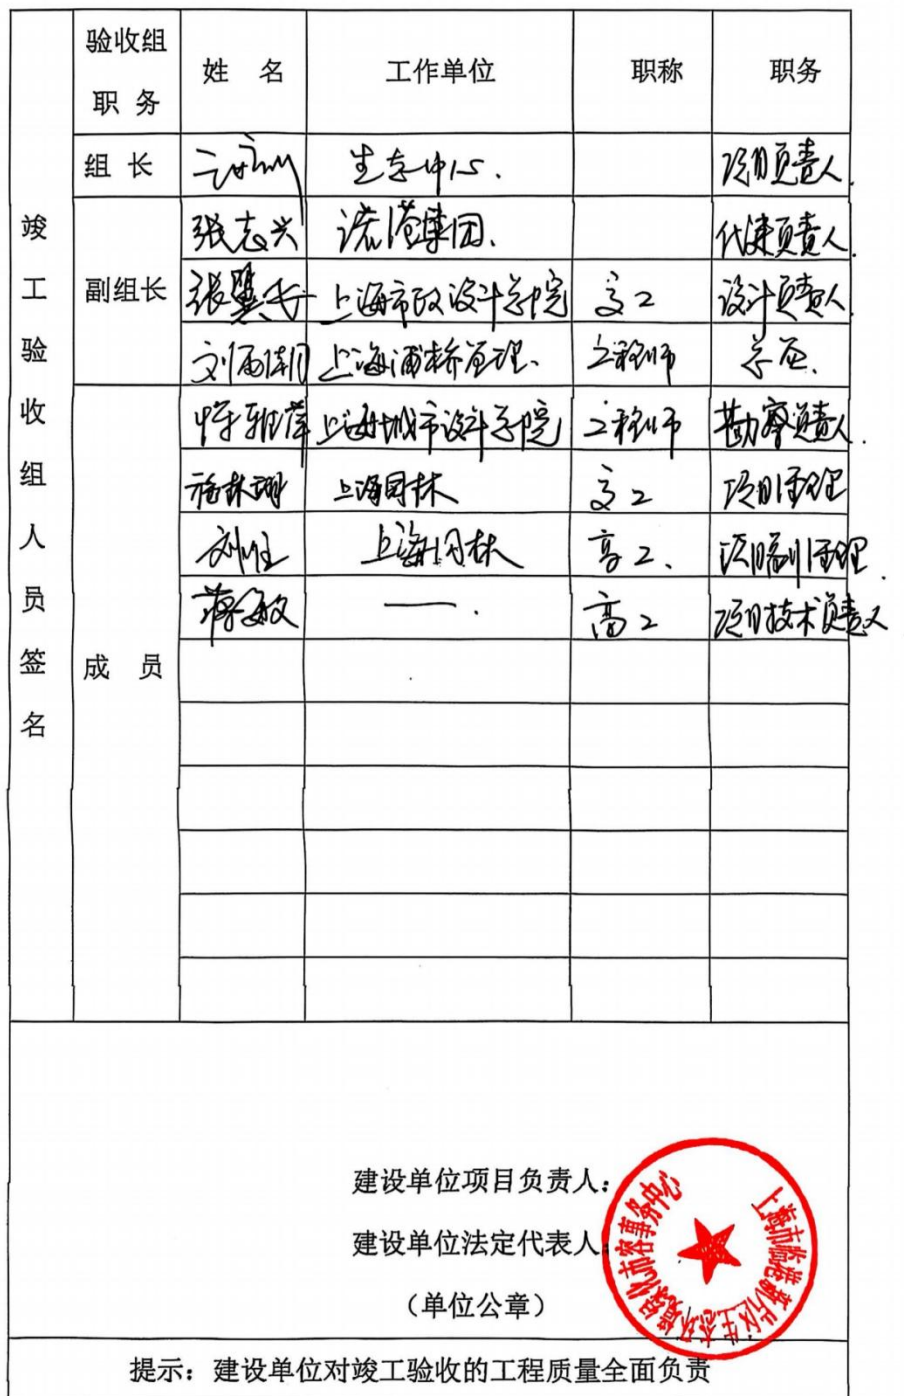 验收组职务 姓 名 工作单位 职称 职务
竣工验收组人员签名
组 长 生态中心. 项目负责人.
副组长
张志兴 港集团. 代建负责人.
张翼 上海市政设计总院 高工 设计负责人.
刘 上海浦桥管理. 工程师 总监.
成 员
上海城市设计总院 工程师 勘察负责人.
上海园林 高工 项目经理
上海园林 高工. 项目副经理.
蒋敏 —. 高工 项目技术负责人
建设单位项目负责人:
建设单位法定代表人:
(单位公章)
上海市临港新片区生态环境绿化市容事务中心
提示: 建设单位对竣工验收的工程质量全面负责